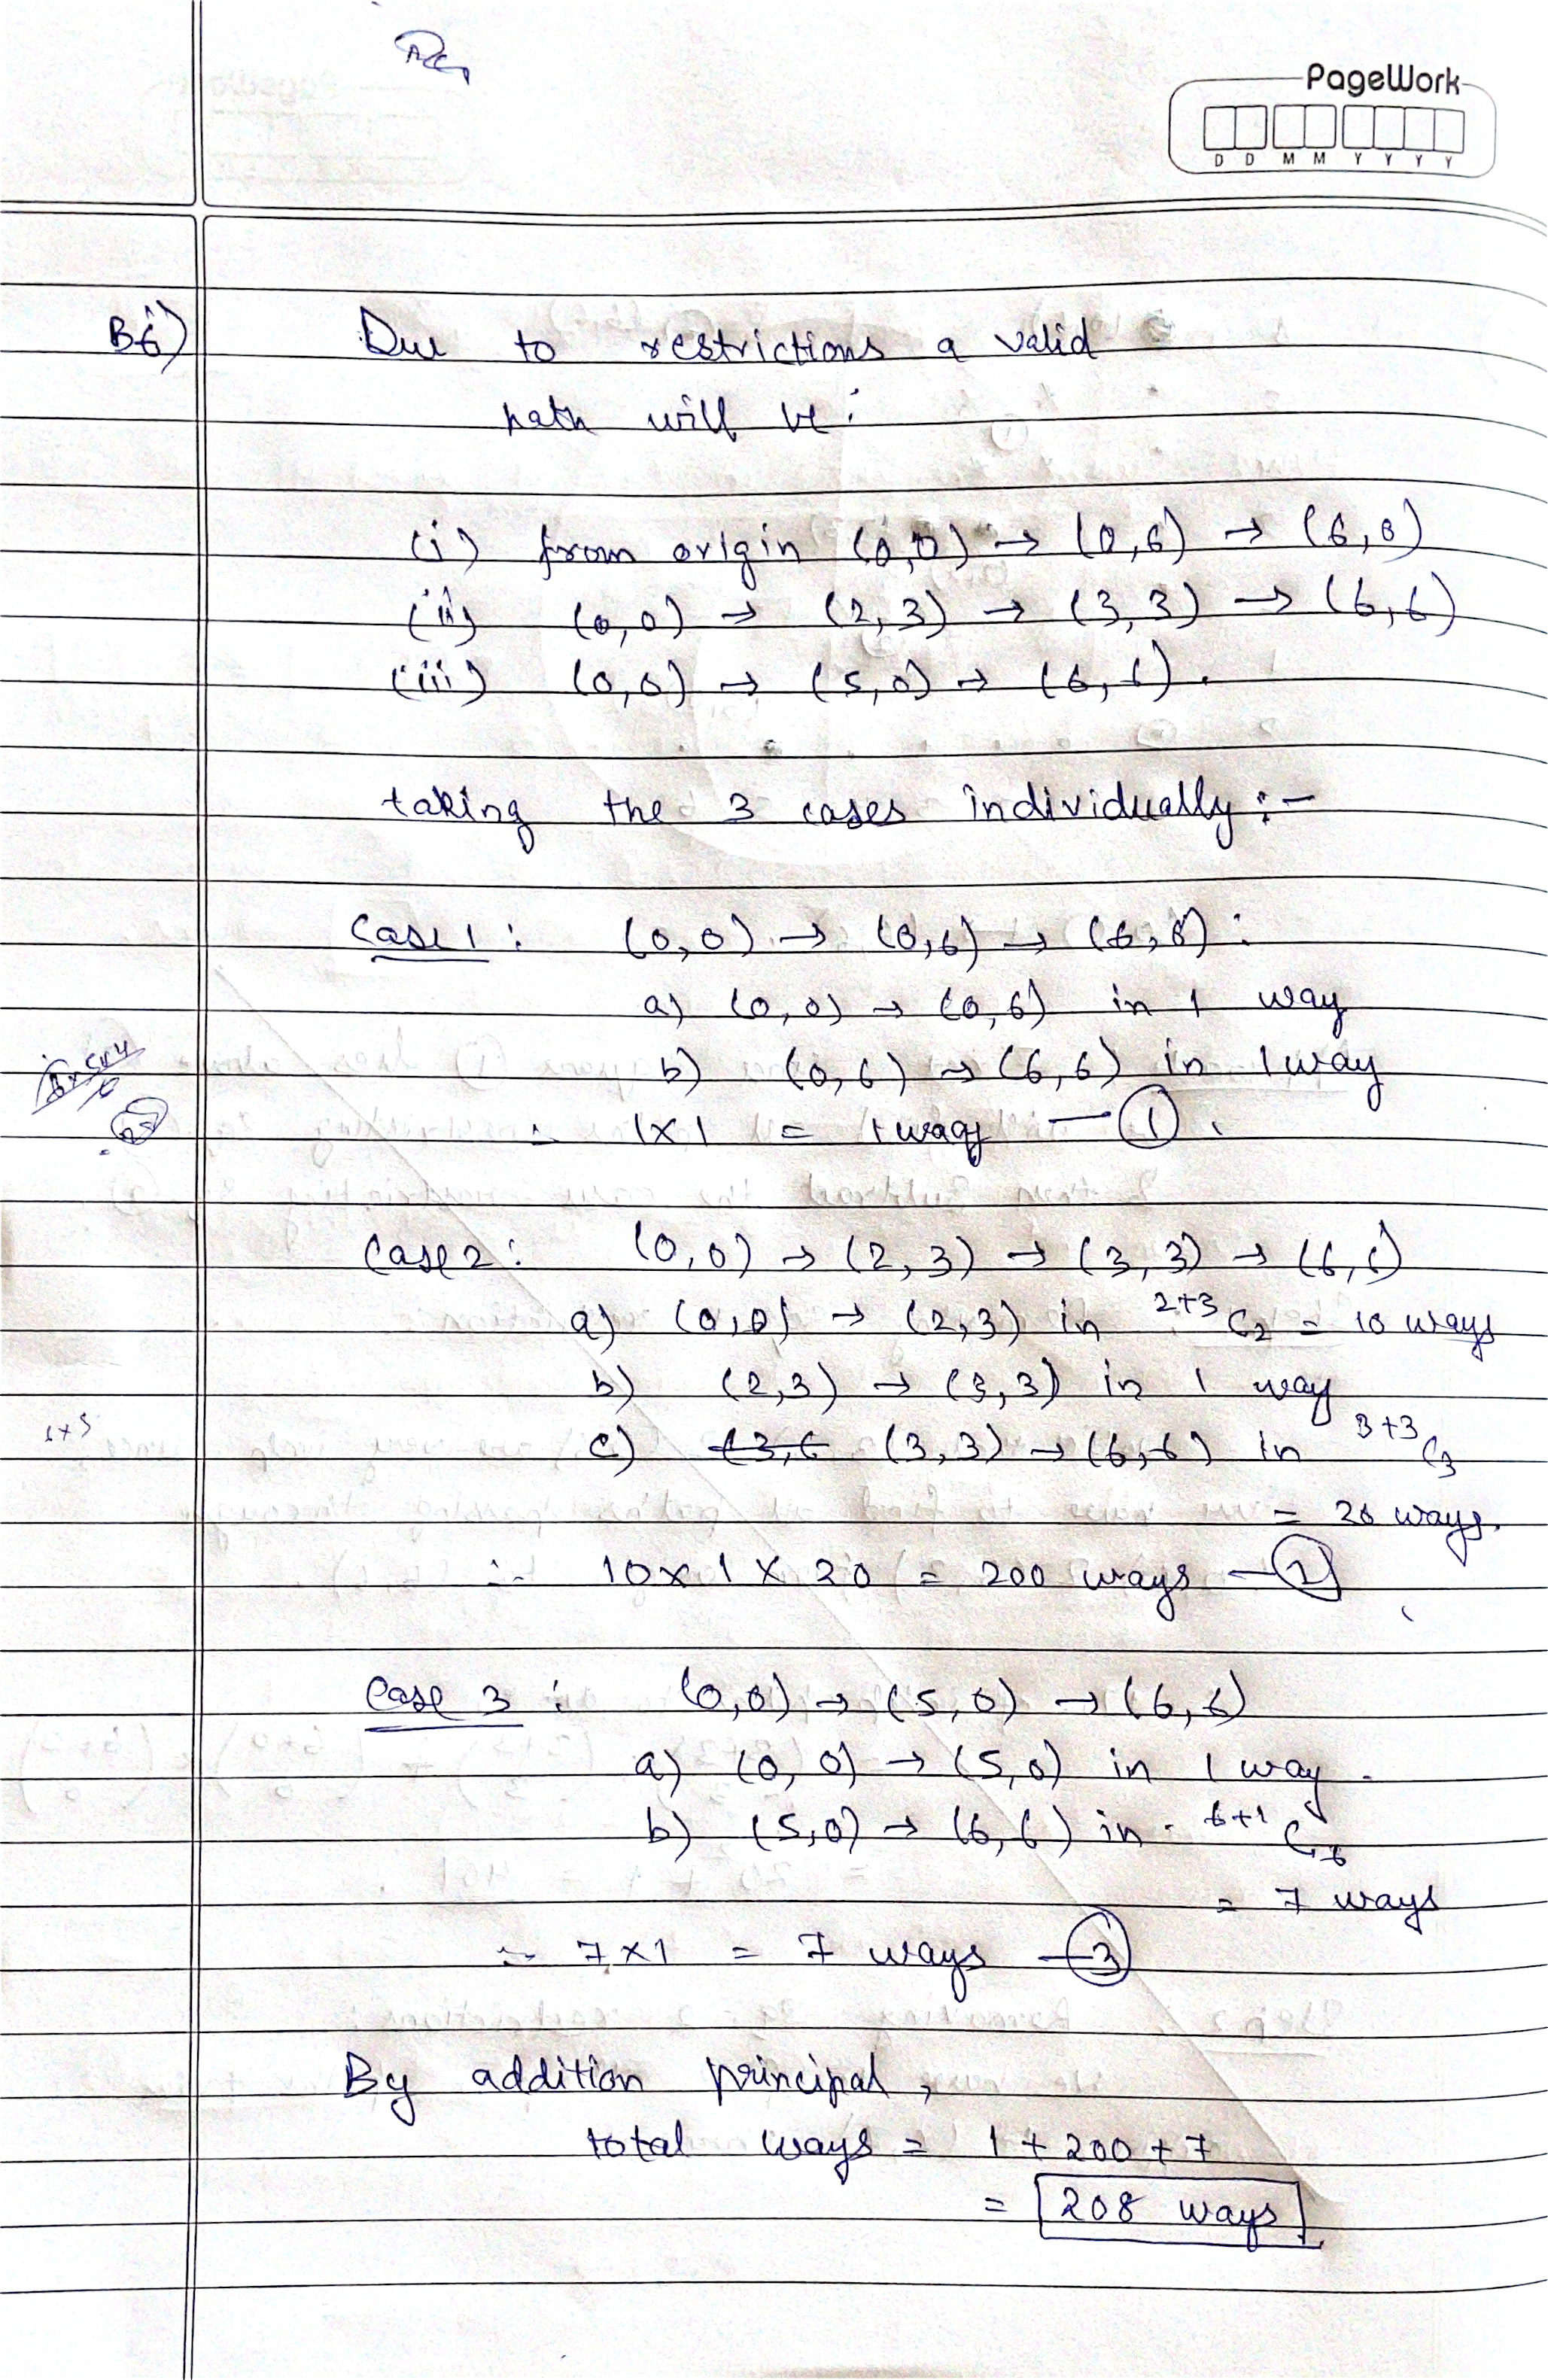 PageWork
D D M M Y Y Y Y
B6)
Due to restrictions a valid
path will be :
(i) from origin (0,0) → (0,6) → (6,6)
(ii) (0,0) → (2,3) → (3,3) → (6,6)
(iii) (0,0) → (5,0) → (6,6).
taking the 3 cases individually :-
Case 1 : (0,0) → (0,6) → (6,6) :
a) (0,0) → (0,6) in 1 way
b) (0,6) → (6,6) in 1 way
∴ 1×1 = 1 way — ①.
Case 2 : (0,0) → (2,3) → (3,3) → (6,6)
a) (0,0) → (2,3) in ²⁺³C₂ = 10 ways
b) (2,3) → (3,3) in 1 way
1+5
c) (3,3) → (6,6) in ³⁺³C₃
= 20 ways.
∴ 10 × 1 × 20 = 200 ways — ②
Case 3 : (0,0) → (5,0) → (6,6)
a) (0,0) → (5,0) in 1 way.
b) (5,0) → (6,6) in ⁶⁺¹C₆
= 7 ways
∴ 7×1 = 7 ways — ③
By addition principal,
total ways = 1 + 200 + 7
= 208 ways